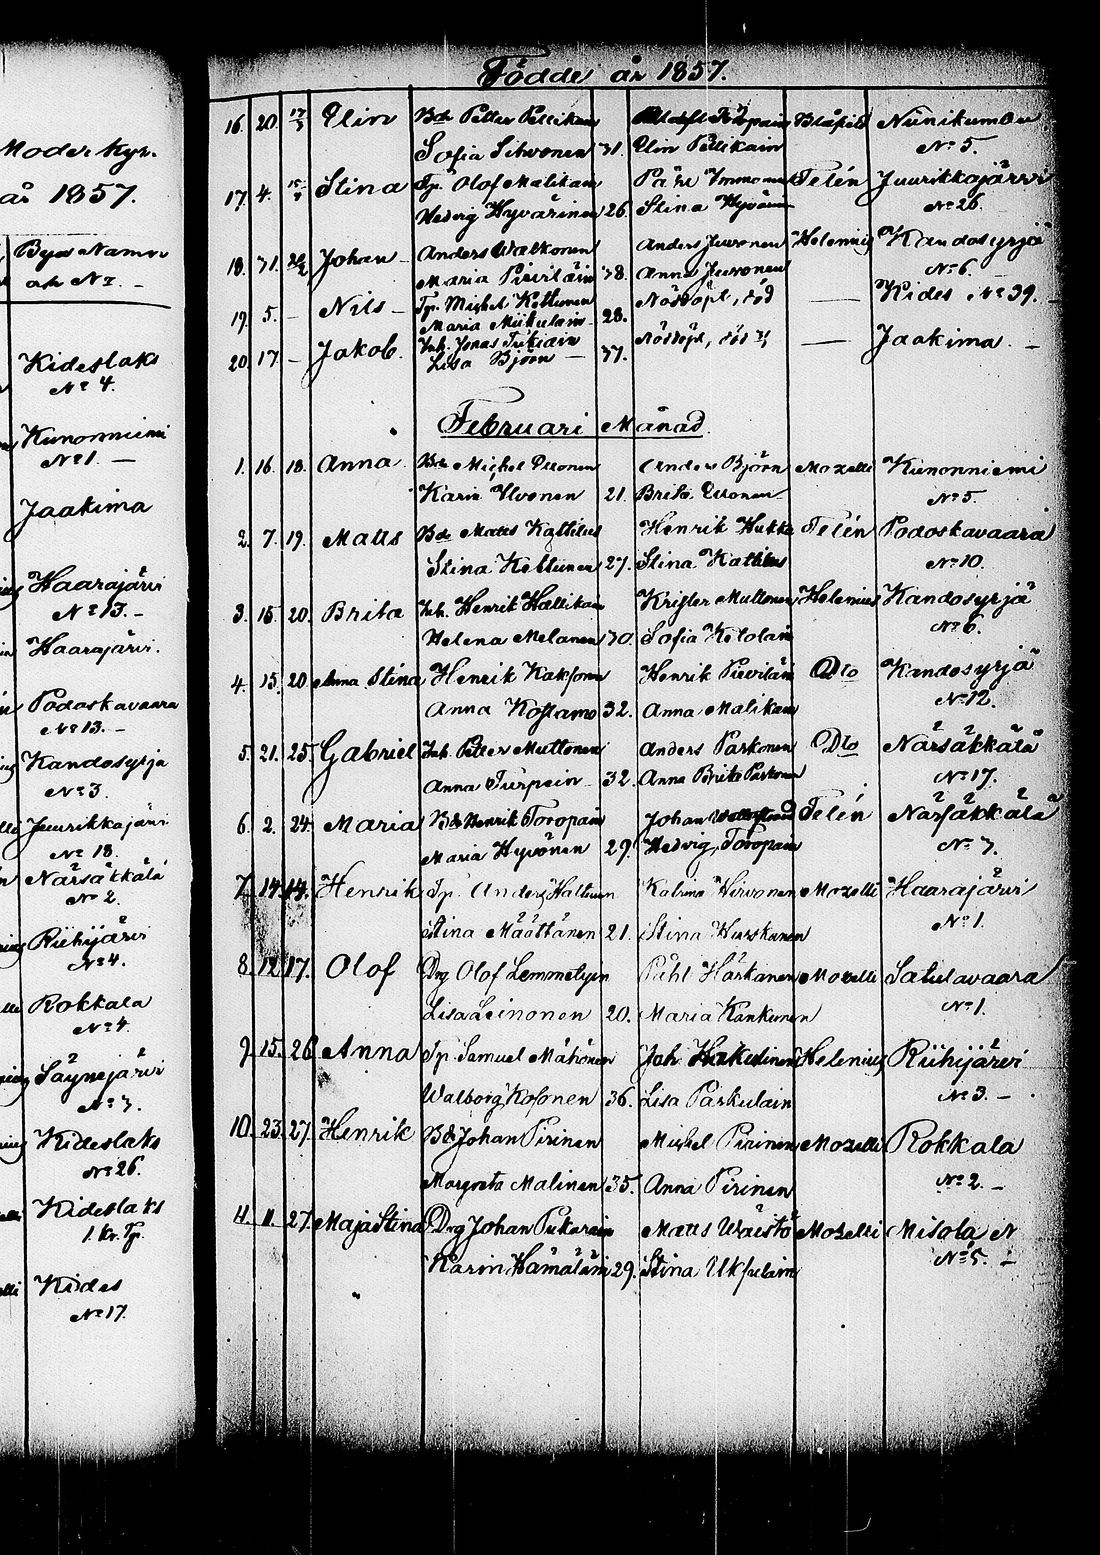 Moder Kyr.
år 1857.
Byns Namn
och No. -
Kideslaks
No 4.
Kunonniemi
No 1. -
Jaakima
Haarajärvi
No 13. -
Haarajärvi.
Podoskavaara
No 13. -
Kandosyrja
No 3.
Juurikkajärvi
No 18.
Närsäkkälä
No 2.
Riihijärvi
No 4.
Rokkala
No 4.
Säynejärvi
No 7.
Kideslaks
No 26.
Kideslaks
1. Kr. Tp.
Kides
No 17.
Födde år 1857.
16. 20. Elin Bd. Petter Pellikain Niinikumbu
Sofia Sihvonen 31. Elin Pellikain No 5.
17. 4. Stina Tp. Olof Malikain Påhl Immonen Telén Juurikkajärvi
Hedvig Hyvärinen 26. Stina Hyvärin No 26.
18. 31. Johan Anders Walkonen Anders Juvonen Helenius Kandosyrjä
Maria Pieviläin 38. Anna Juvonen No 6.
19. 5. - Nils - Tp. Mickel Kettunen Nöddöpt, död - Kides No 39. -
Maria Miikulain 28.
20. 17. - Jakob. Inh. Jonas Tukiain Nöddöpt, död - Jaakima. -
Lisa Björn - 37.
Februari Månad
1. 16. 18. Anna Bd. Michel Anders Björn Mozelli Kunonniemi
Karin Ilvonen 21. Brita No 5.
2. 7. 19. Matts Bd. Matts Kattilus Henrik Hukka Telén Podoskavaara
Stina Kettunen 27. Stina Kattilus No 10.
3. 15. 20. Brita Inh. Henrik Hallikain Krister Muttonen Helenius Kandosyrjä
Helena Melanen 30. Sofia Ketolain No 6.
4. 15. 20. Anna Stina Henrik Henrik Pieviläin Dto Kandosyrjä
Anna Kostamo 32. Anna Malikain No 12.
5. 21. 25. Gabriel Inh. Petter Muttonen Anders Parkonen Dto Närsäkkälä
Anna Turpein 32. Anna Brita Parkonen No 17.
6. 2. 24. Maria Bd Henrik Toropain Johan Telén Närsäkkälä
Maria Hyvönen 29. Hedvig Toropain No 7.
7. 14. 14. Henrik Tp. Anders Haltunen Katrina Hirvonen Mozelli Haarajärvi
Stina Määttänen 21. Stina Hurskanen No 1.
8. 12. 17. Olof Drg Olof Lemmetyin Påhl Härkänen Mozelli Satulavaara
Lisa Leinonen 20. Maria Kankunen No 1.
9. 15. 26. Anna Tp. Samuel Mähönen Joh. Hakulinen Helenius Riihijärvi
Walborg Kosonen 36. Lisa Parkulain No 3. -
10. 23. 27. Henrik Bd Johan Pirinen Mickel Pirinen Mozelli Rokkala
Margreta Malinen 35. Anna Pirinen No 2. -
11. 11. 27. Maja Stina Drg Johan Pukarain Matts Waisto Mozelli Misola N
Karin Hämäläin 29. Stina Uksulain No 5. -